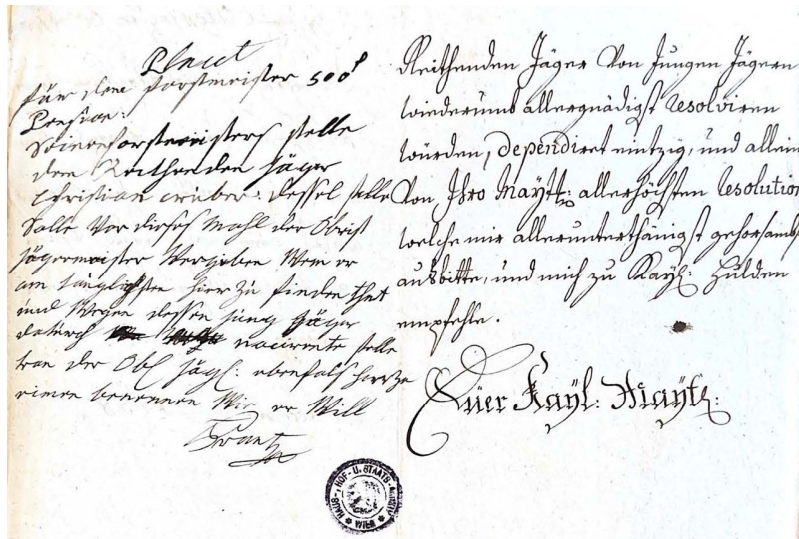 Placet
für den forstmeister 500 f
Pension:
seine forstmeisters stelle
dem Reithenden Jäger
Christian gruber: dessel stelle
solle vor dieses mahl der Obrist
jägermeister Vergeben Wem er
am tauglichsten hier zu finden thut
und Wegen dessen jung jäger
dadurch nacirente stelle
kan der Obl jägl: ebenfals hierzu
einen benennen Wie er Will
Frantz
Reithenden Jäger Von Jungen Jägern
wiederumb allergnädigst resolviren
würden, dependiret eintzig, und allein
Von Ihro Maytt: allerhöchsten resolution
welche mir allerunterthänigst gehorsambst
ausbitte, und mich zu Kayl: Hulden
empfehle.
Euer Kayl: Maytt:
HAUS-, HOF- U. STAATS-ARCHIV
WIEN